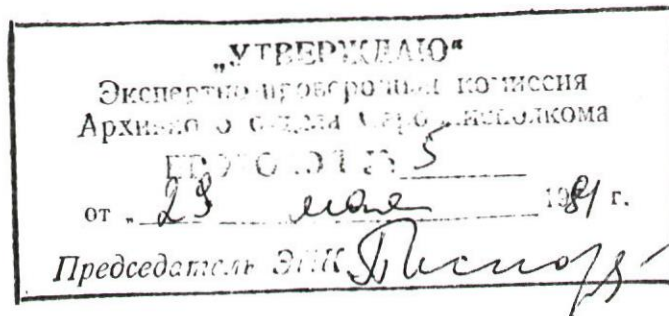 „УТВЕРЖДАЮ“
Экспертно-проверочная комиссия
Архивного отдела
ПРОТОКОЛ № 5
от „ 23 мая 1981 г.
Председатель ЭПК